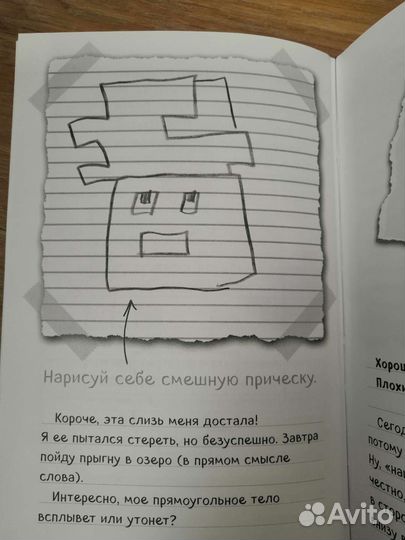 Нарисуй себе смешную прическу.
Короче, эта слизь меня достала!
Я ее пытался стереть, но безуспешно. Завтра
пойду прыгну в озеро (в прямом смысле
слова).
Интересно, мое прямоугольное тело
всплывет или утонет?
Хорош
Плохи
Сегод
потому
Ну, «на
честно,
в старо
низу в
Avito